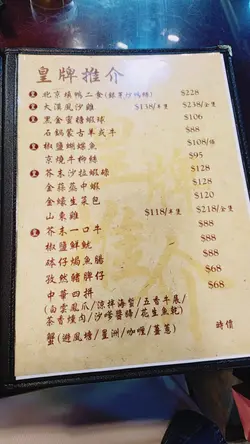 皇牌推介
皇 北京填鴨二食(銀芽炒鴨絲) $228
皇 大漠風沙雞 $138/半隻 $238/全隻
皇 黑金蜜糖蝦球 $106
石鍋蒙古羊或牛 $88
皇 椒鹽蝴蝶魚 $108/條
京燒牛柳絲 $95
皇 芥末沙拉蝦球 $128
金蒜蒸中蝦 $130
金蠔生菜包 $120
山東雞 $118/半隻 $218/全隻
皇 芥末一口牛 $88
椒鹽鮮魷 $88
砵仔焗魚腸 $68
孜然豬脾仔 $68
中華四拼 $68
(白雲鳳爪/涼拌海蜇/五香牛展/
茶香燻肉/沙嗲醬腸/花生魚乾)
蟹(避風塘/星洲/咖喱/薑蔥) 時價